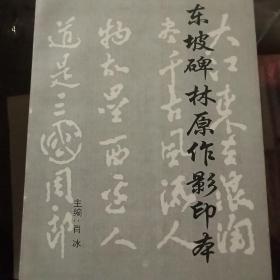 大江東去浪淘
東坡碑林原作影印本
尽千古風流人
物故壘西邊人
主编:肖冰
道是三國周郎